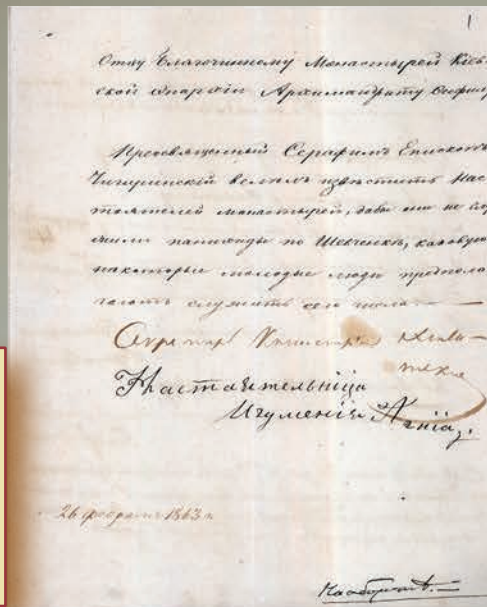 1
Отцу Благочинному Монастырей Кіев-
ской Епархіи Архимандриту
Преосвященный Серафимъ Епископъ
Чигиринскій велѣлъ извѣстить Нас-
тоятелей монастырей, дабы они не слу
жили панихиды по Шевченкѣ, каковую
нѣкоторые молодые люди предпола
гаютъ служить сего числа
Секретарь
Настоятельніца
Игуменія Агнія
26 февраля 1863 г.